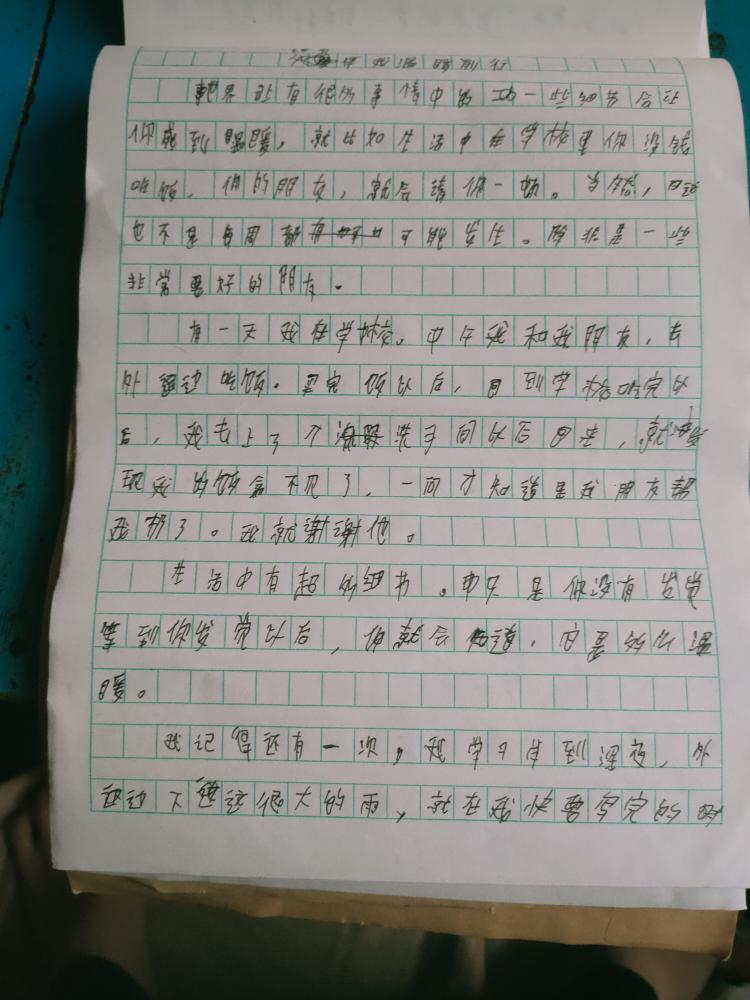 伴我温暖前行
世界上有很多事情中的一些细节会让
你感到温暖，就比如生活中在学校里你没钱
吃饭，你的朋友，就会请你一顿。当然，
也不是每周都有可能发生。除非是一些
非常要好的朋友。
有一天我在学校。中午我和我朋友，去
外边吃饭。买完饭以后，回到学校吃完以
后，我去上了个洗手间以后回来，就发
现我的饭盒不见了，一问才知道是我朋友帮
我扔了。我就谢谢他。
生活中有超多细节。只是你没有发觉
等到你发觉以后，你就会知道，它是多么温
暖。
我记得还有一次，我学习一直到深夜，外
边下着很大的雨，就在我快要写完的时